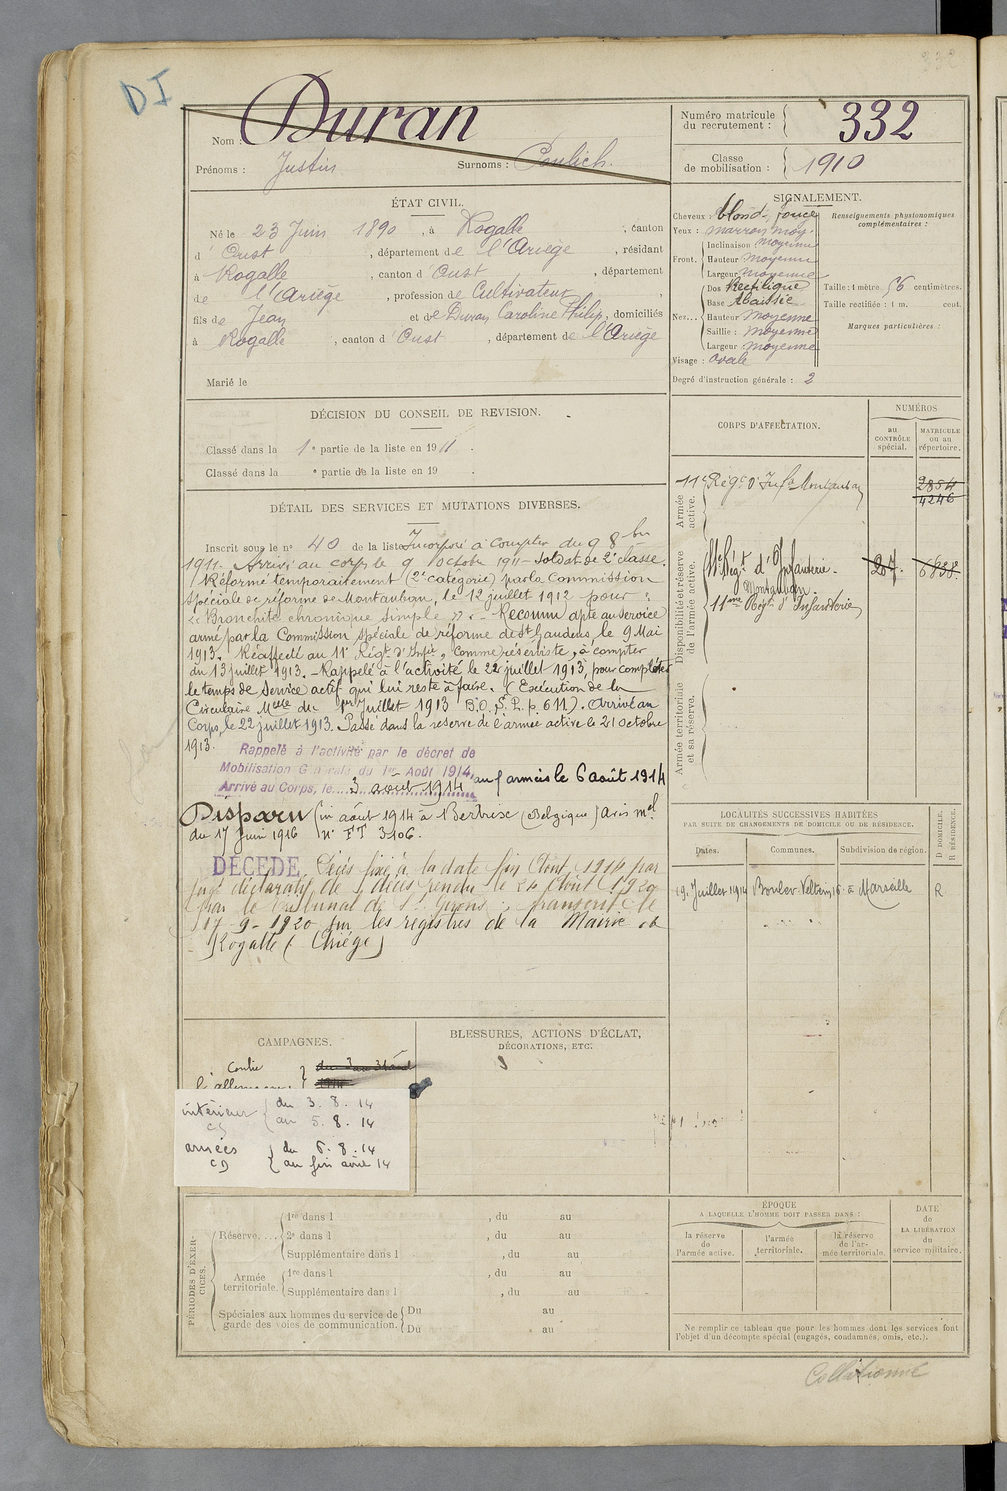 DI
Nom : Duran
Prénoms : Justin Surnoms : Coulich.
Numéro matricule du recrutement : 332
Classe de mobilisation : 1910
ÉTAT CIVIL.
Né le 23 Juin 1890, à Rogalle, canton
d'Oust, département de l'Ariège, résidant
à Rogalle, canton d'Oust, département
de l'Ariège, profession de Cultivateur,
fils de Jean et de Duran Caroline Philip, domiciliés
à Rogalle, canton d'Oust, département de l'Ariège
Marié le
SIGNALEMENT.
Cheveux : blond foncé
Yeux : marron moy.
Front. Inclinaison moyenne
Hauteur moyenne
Largeur moyenne
Nez... Dos Rectiligne
Base Abaissée
Hauteur moyenne
Saillie : moyenne
Largeur moyenne
Visage : ovale
Renseignements physionomiques complémentaires :
Taille : 1 mètre 56 centimètres.
Taille rectifiée : 1 m. cent.
Marques particulières :
Degré d'instruction générale : 2
DÉCISION DU CONSEIL DE REVISION.
Classé dans la 1e partie de la liste en 1911.
Classé dans la e partie de la liste en 19 .
DÉTAIL DES SERVICES ET MUTATIONS DIVERSES.
Inscrit sous le n° 40 de la liste Incorporé à compter du 9 8bre
1911. Arrivé au corps le 9 octobre 1911 - Soldat de 2e classe.
Réformé temporairement (2e catégorie) par la Commission
Spéciale de réforme de Montauban, le 12 juillet 1912 pour :
"Bronchite chronique simple". - Reconnu apte au service
armé par la Commission spéciale de réforme de St Gaudens, le 9 Mai
1913. Réaffecté au 11e Régt d'Infie, Comme réserviste, à compter
du 13 juillet 1913. - Rappelé à l'activité le 22 juillet 1913, pour compléter
le temps de service actif qui lui reste à faire. (Exécution de la
Circulaire Melle du 1er juillet 1913 B.O. P.P. p. 611). Arrivé au
Corps, le 22 juillet 1913. Passé dans la réserve de l'armée active le 21 octobre
1913.
Rappelé à l'activité par le décret de
Mobilisation Générale du 1er Août 1914,
Arrivé au Corps, le 3 août 1914, aux armées le 6 août 1914
Disparu fin août 1914 à Bertrix (Belgique) avis mel
du 17 Juin 1916 n° FT 3106.
DÉCÉDÉ Décès fixé à la date fin Août 1914 par
jugt déclaratif de décès rendu le 24 Août 1920
par le tribunal de St Girons, transcrit le
17-9-1920 sur les registres de la Mairie de
Rogalle (Ariège)
CORPS D'AFFECTATION.
NUMÉROS
au CONTRÔLE spécial.
MATRICULE ou au répertoire.
Armée active.
11e Régt d'Infie Montauban
2854
4246
Disponibilité et réserve de l'armée active.
11e Régt d'Infanterie. 207. 6838.
Montauban.
11me Régt d'Infanterie
Armée territoriale et sa réserve.
LOCALITÉS SUCCESSIVES HABITÉES
PAR SUITE DE CHANGEMENTS DE DOMICILE OU DE RÉSIDENCE.
Dates. Communes. Subdivision de région. D DOMICILE. R RÉSIDENCE.
19 Juillet 1914 Marseille R
CAMPAGNES.
Contre
l'allemagne
intérieur CS du 3.8.14
au 5.8.14
armées CD du 6.8.14
au fin avril 14
BLESSURES, ACTIONS D'ÉCLAT,
DÉCORATIONS, ETC.
PÉRIODES D'EXERCICES.
Réserve.... 1re dans l , du au
2e dans l , du au
Supplémentaire dans l , du au
Armée territoriale. 1re dans l , du au
Supplémentaire dans l , du au
Spéciales aux hommes du service de garde des voies de communication. Du au
Du au
ÉPOQUE
A LAQUELLE L'HOMME DOIT PASSER DANS :
la réserve de l'armée active.
l'armée territoriale.
la réserve de l'armée territoriale.
DATE de LA LIBÉRATION du service militaire.
Ne remplir ce tableau que pour les hommes dont les services font
l'objet d'un décompte spécial (engagés, condamnés, omis, etc.).
Collationné